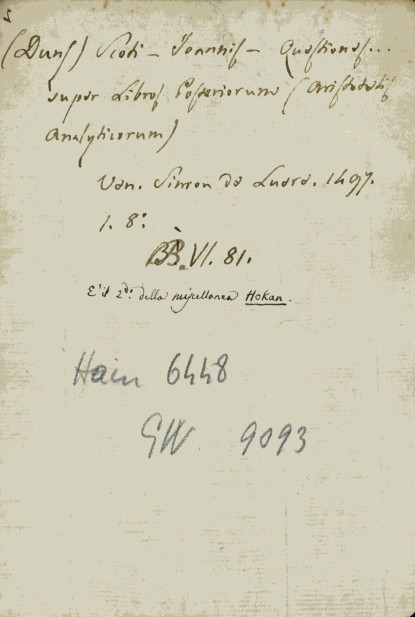 (Duns) Scoti – Joannis – Quæstiones...
super Libros Posteriorum (Aristotelis
Analyticorum)
Ven. Simon de Luere. 1497.
1. 8º
BB. VI. 81.
E' il 2do. della miscellanea Hokan.
Hain 6448
GW. 9093